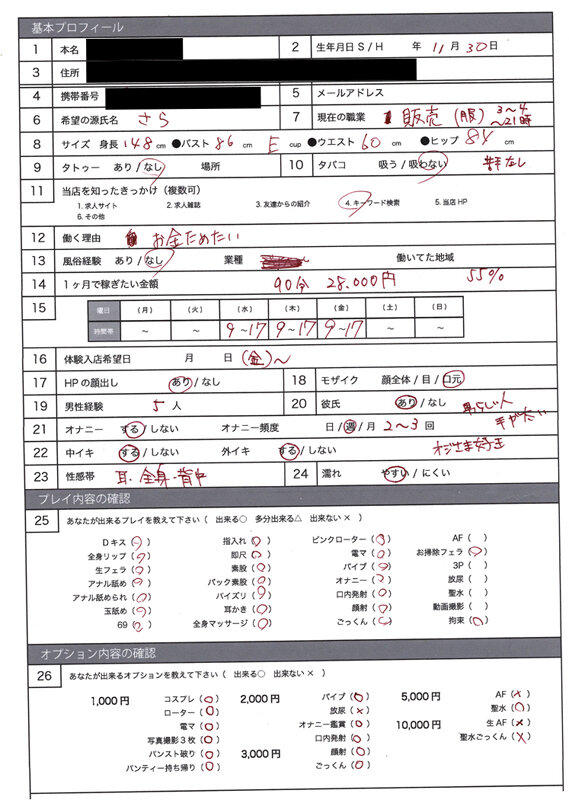 基本プロフィール
1 本名 2 生年月日 S / H 年 11 月 30 日
3 住所
4 携帯番号 5 メールアドレス
6 希望の源氏名 さら 7 現在の職業 販売 (服) 3〜4 〜21時
8 サイズ 身長 148 cm ●バスト 86 cm E cup ●ウエスト 60 cm ●ヒップ 84 cm
9 タトゥー あり / なし 場所 10 タバコ 吸う / 吸わない なし
11 当店を知ったきっかけ (複数可)
1. 求人サイト 2. 求人雑誌 3. 友達からの紹介 4. キーワード検索 5. 当店 HP
6. その他
12 働く理由 お金ためたい
13 風俗経験 あり / なし 業種 働いてた地域
14 1ヶ月で稼ぎたい金額 90分 28.000円 55%
15 曜日 (月) (火) (水) (木) (金) (土) (日)
時間帯 〜 〜 9〜17 9〜17 9〜17 〜 〜
16 体験入店希望日 月 日 (金)〜
17 HPの顔出し あり / なし 18 モザイク 顔全体 / 目 / 口元
19 男性経験 5 人 20 彼氏 あり / なし
21 オナニー する / しない オナニー頻度 日 / 週 / 月 2〜3 回
22 中イキ する / しない 外イキ する / しない
23 性感帯 耳・全身・背中 24 濡れ やすい / にくい
プレイ内容の確認
25 あなたが出来るプレイを教えて下さい ( 出来る○ 多分出来る△ 出来ない × )
Dキス (○) 指入れ (○) ピンクローター (○) AF ( )
全身リップ (○) 即尺 (○) 電マ (○) お掃除フェラ (○)
生フェラ (○) 素股 (○) バイブ (○) 3P ( )
アナル舐め (○) バック素股 (○) オナニー (○) 放尿 ( )
アナル舐められ (○) パイズリ (○) 口内発射 (○) 聖水 ( )
玉舐め (○) 耳かき (○) 顔射 (○) 動画撮影 ( )
69 (○) 全身マッサージ (○) ごっくん (○) 拘束 (○)
オプション内容の確認
26 あなたが出来るオプションを教えて下さい ( 出来る○ 出来ない × )
1,000円 コスプレ (○) 2,000円 バイブ (○) 5,000円 AF (×)
ローター (○) 放尿 (×) 聖水 (○)
電マ (○) オナニー鑑賞 (○) 10,000円 生AF (×)
写真撮影3枚 (○) 口内発射 (○) 聖水ごっくん (×)
パンスト破り (○) 3,000円 顔射 (○)
パンティー持ち帰り (○) ごっくん (○)